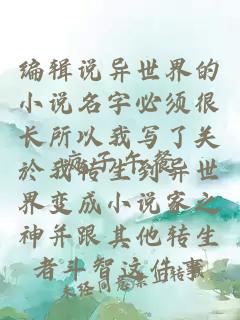 编辑说异世界的
小说名字必须很
长所以我写了关
於我转生到异世
界变成小说家之
神并跟其他转生
者斗智这件事
疯子午餐
未经同意禁止转载